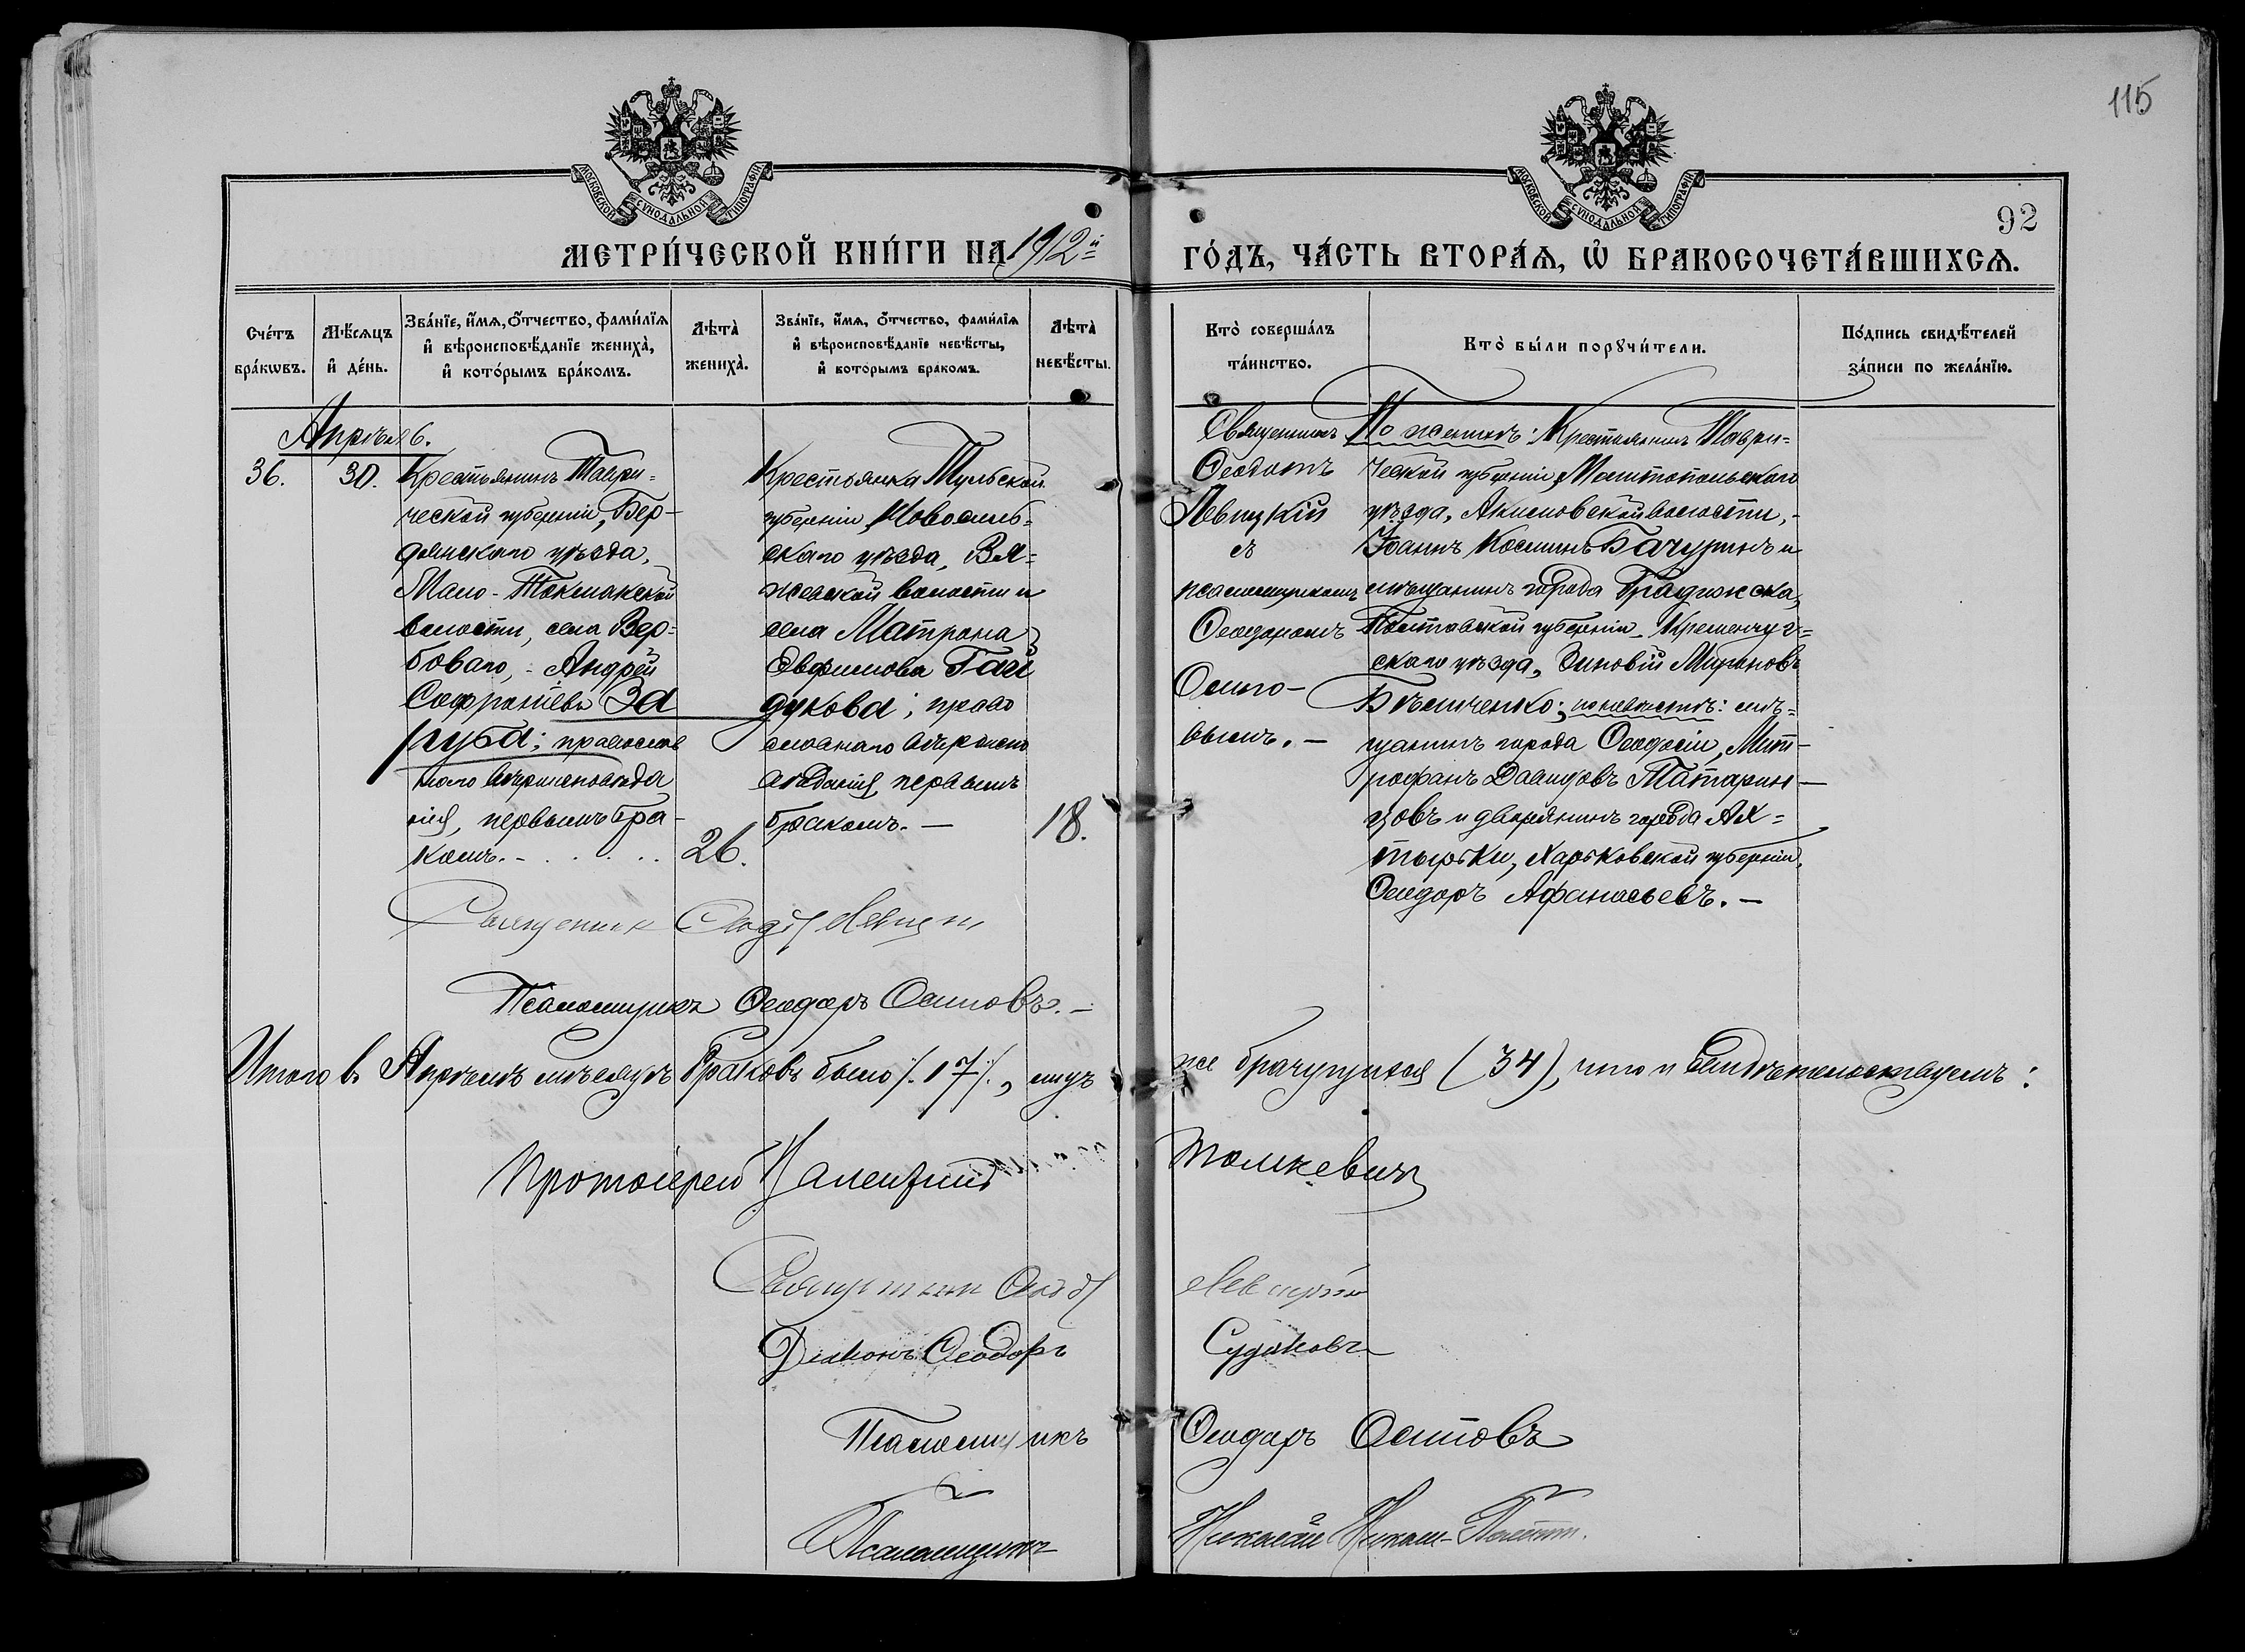 115
МОСКОВСКОЙ СУНОДАЛЬНОЙ ТИПОГРАФІИ
МОСКОВСКОЙ СУНОДАЛЬНОЙ ТИПОГРАФІИ
92
МЕТРИ́ЧЕСКОЙ КНИ́ГИ НА 1912й
ГО́ДЪ, ЧА́СТЬ ВТОРА́Ѧ, Ѽ БРАКОСОЧЕТА́ВШИХСѦ.
Сче́тъ бра́кѡвъ.
Мѣ́сяцъ и҆ де́нь.
Зва́нїе, и҆́мѧ, ѻ҆́тчество, фами́лїѧ
и҆ вѣроисповѣ́данїе жениха̀,
и҆ кото́рымъ бра́комъ.
Лѣта̀ жениха̀.
Зва́нїе, и҆́мѧ, ѻ҆́тчество, фами́лїѧ
и҆ вѣроисповѣ́данїе невѣ́сты,
и҆ кото́рымъ бракомъ.
Лѣта̀ невѣ́сты.
Кто̀ соверша́лъ
та́инство.
Кто̀ бы́ли порꙋчи́тели.
По́дпись свидѣ́телей
за́писи по жела́нїю.
Апрѣля
36.
30.
Крестьянинъ Таври-
ческой губерніи, Бер-
дянскаго уѣзда,
Мало-Токмакской
волости, села Вер-
боваго, - Андрей
Софроніевъ За
руба; православ
наго вѣроисповѣда
нія, первымъ бра-
комъ. -
26.
Крестьянка Тульской
губерніи, Новосиль-
скаго уѣзда, Вя-
жевской волости и
села Матрона
Евфимова Гай
дукова; право
славнаго вѣроиспо
вѣданія, первымъ
бракомъ. -
18.
Священникъ
Ѳеодотъ
Левицкій
съ
псаломщикомъ
Ѳеодоромъ
Осипо-
вымъ. -
По женихѣ: Крестьянинъ Таври-
ческой губерніи, Мелитопольскаго
уѣзда, Акимовской волости, -
Іоаннъ Косминъ Бачуринъ и
мѣщанинъ города Градижска,
Полтавской губерніи Кременчуг-
скаго уѣзда, Зиновій Мироновъ
Бѣличенко; по невѣстѣ: мѣ-
щанинъ города Ѳеодосіи, Мит-
рофанъ Давидовъ Татарин-
цовъ и дворянинъ города Ах-
тырки, Харьковской губерніи,
Ѳеодоръ Афанасьевъ. -
Священник Левицкі
Псаломщикъ Ѳеодоръ Осиповъ. -
Итого въ Апрѣлѣ мѣсяцѣ браковъ было /.17/., лицъ
же брачущихся (34), что и свидѣтельствуемъ:
Протоіерей Валентинъ
Томкевичъ
Левицкій
Діаконъ Ѳеодоръ
Судаковъ
Псаломщикъ
Ѳеодоръ Осиповъ
Псаломщикъ
Николай